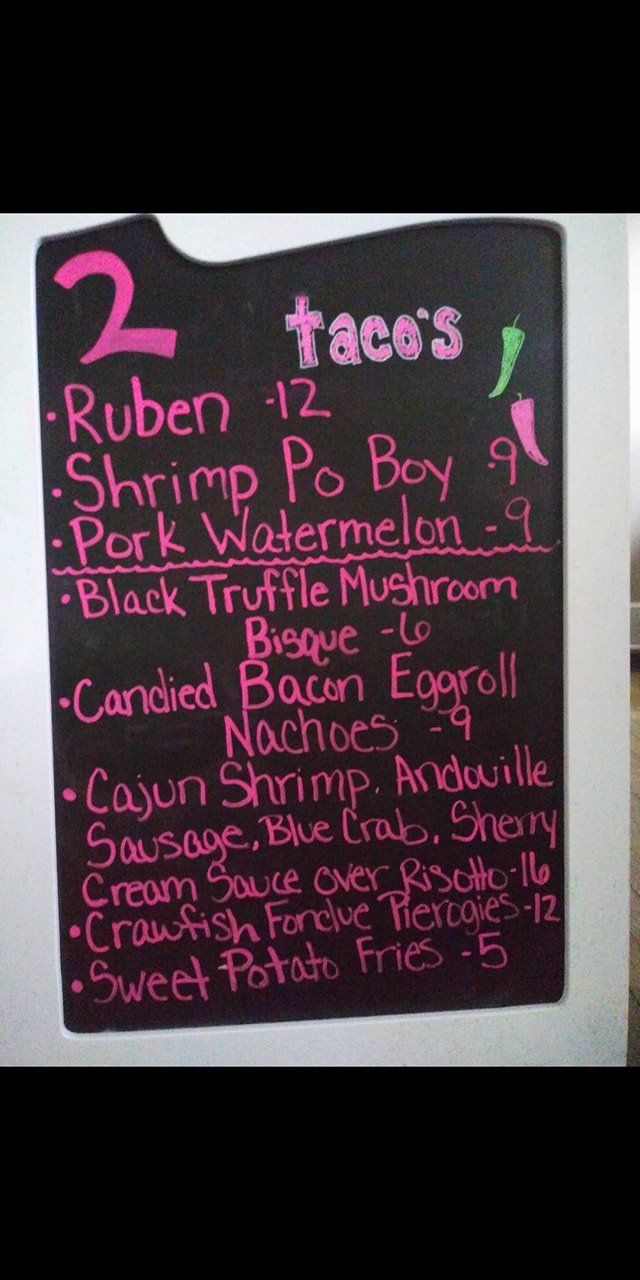 2 taco's
• Ruben - 12
• Shrimp Po Boy - 9
• Pork Watermelon - 9
• Black Truffle Mushroom
Bisque - 6
• Candied Bacon Eggroll
Nachoes - 9
• Cajun Shrimp, Andouille
Sausage, Blue Crab, Sherry
Cream Sauce over Risotto - 16
• Crawfish Fondue Pierogies - 12
• Sweet Potato Fries - 5